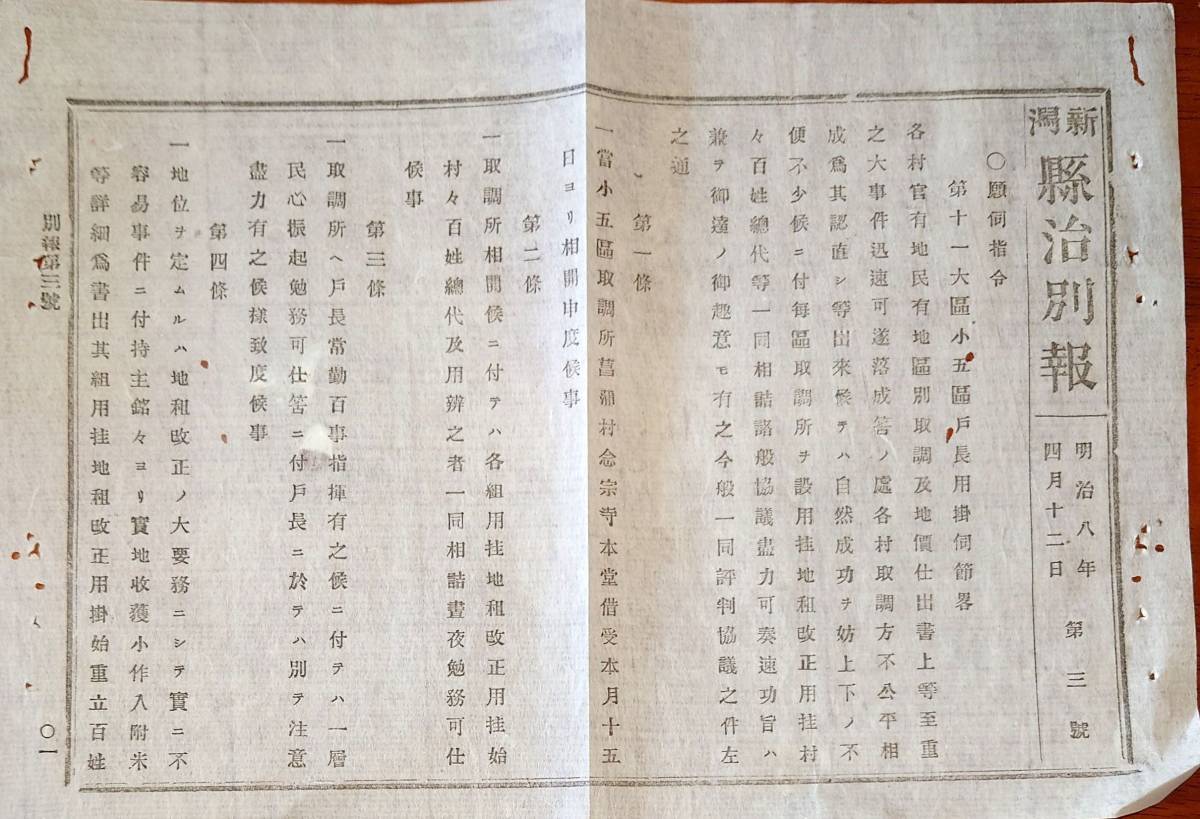 新潟縣治別報 明治八年四月十二日 第三號
〇願伺指令
第十一大區小五區戸長用掛伺節畧
各村官有地民有地區別取調及地價仕出書上等至重
之大事件迅速可遂落成筈ノ處各村取調方不公平相
成爲其認直シ等出來候テハ自然成功ヲ妨上下ノ不
便不少候ニ付每區取調所ヲ設用挂地租改正用挂村
々百姓總代等一同相詰諸般協議盡力可奏速功旨ハ
兼ヲ御達ノ御趣意モ有之今般一同評判協議之件左
之通
第一條
一當小五區取調所菖蒲村念宗寺本堂借受本月十五
日ヨリ相開申度候事
第二條
一取調所相開候ニ付テハ各組用挂地租改正用挂始
村々百姓總代及用辨之者一同相詰晝夜勉務可仕
候事
第三條
一取調所ヘ戸長常勤百事指揮有之候ニ付テハ一層
民心振起勉務可仕筈ニ付戸長ニ於テハ別テ注意
盡力有之候樣致度候事
第四條
一地位ヲ定ムルハ地租改正ノ大要務ニシテ實ニ不
容易事件ニ付持主銘々ヨリ實地收獲小作入附米
等詳細爲書出其組用挂地租改正用掛始重立百姓
別報第三號
〇一